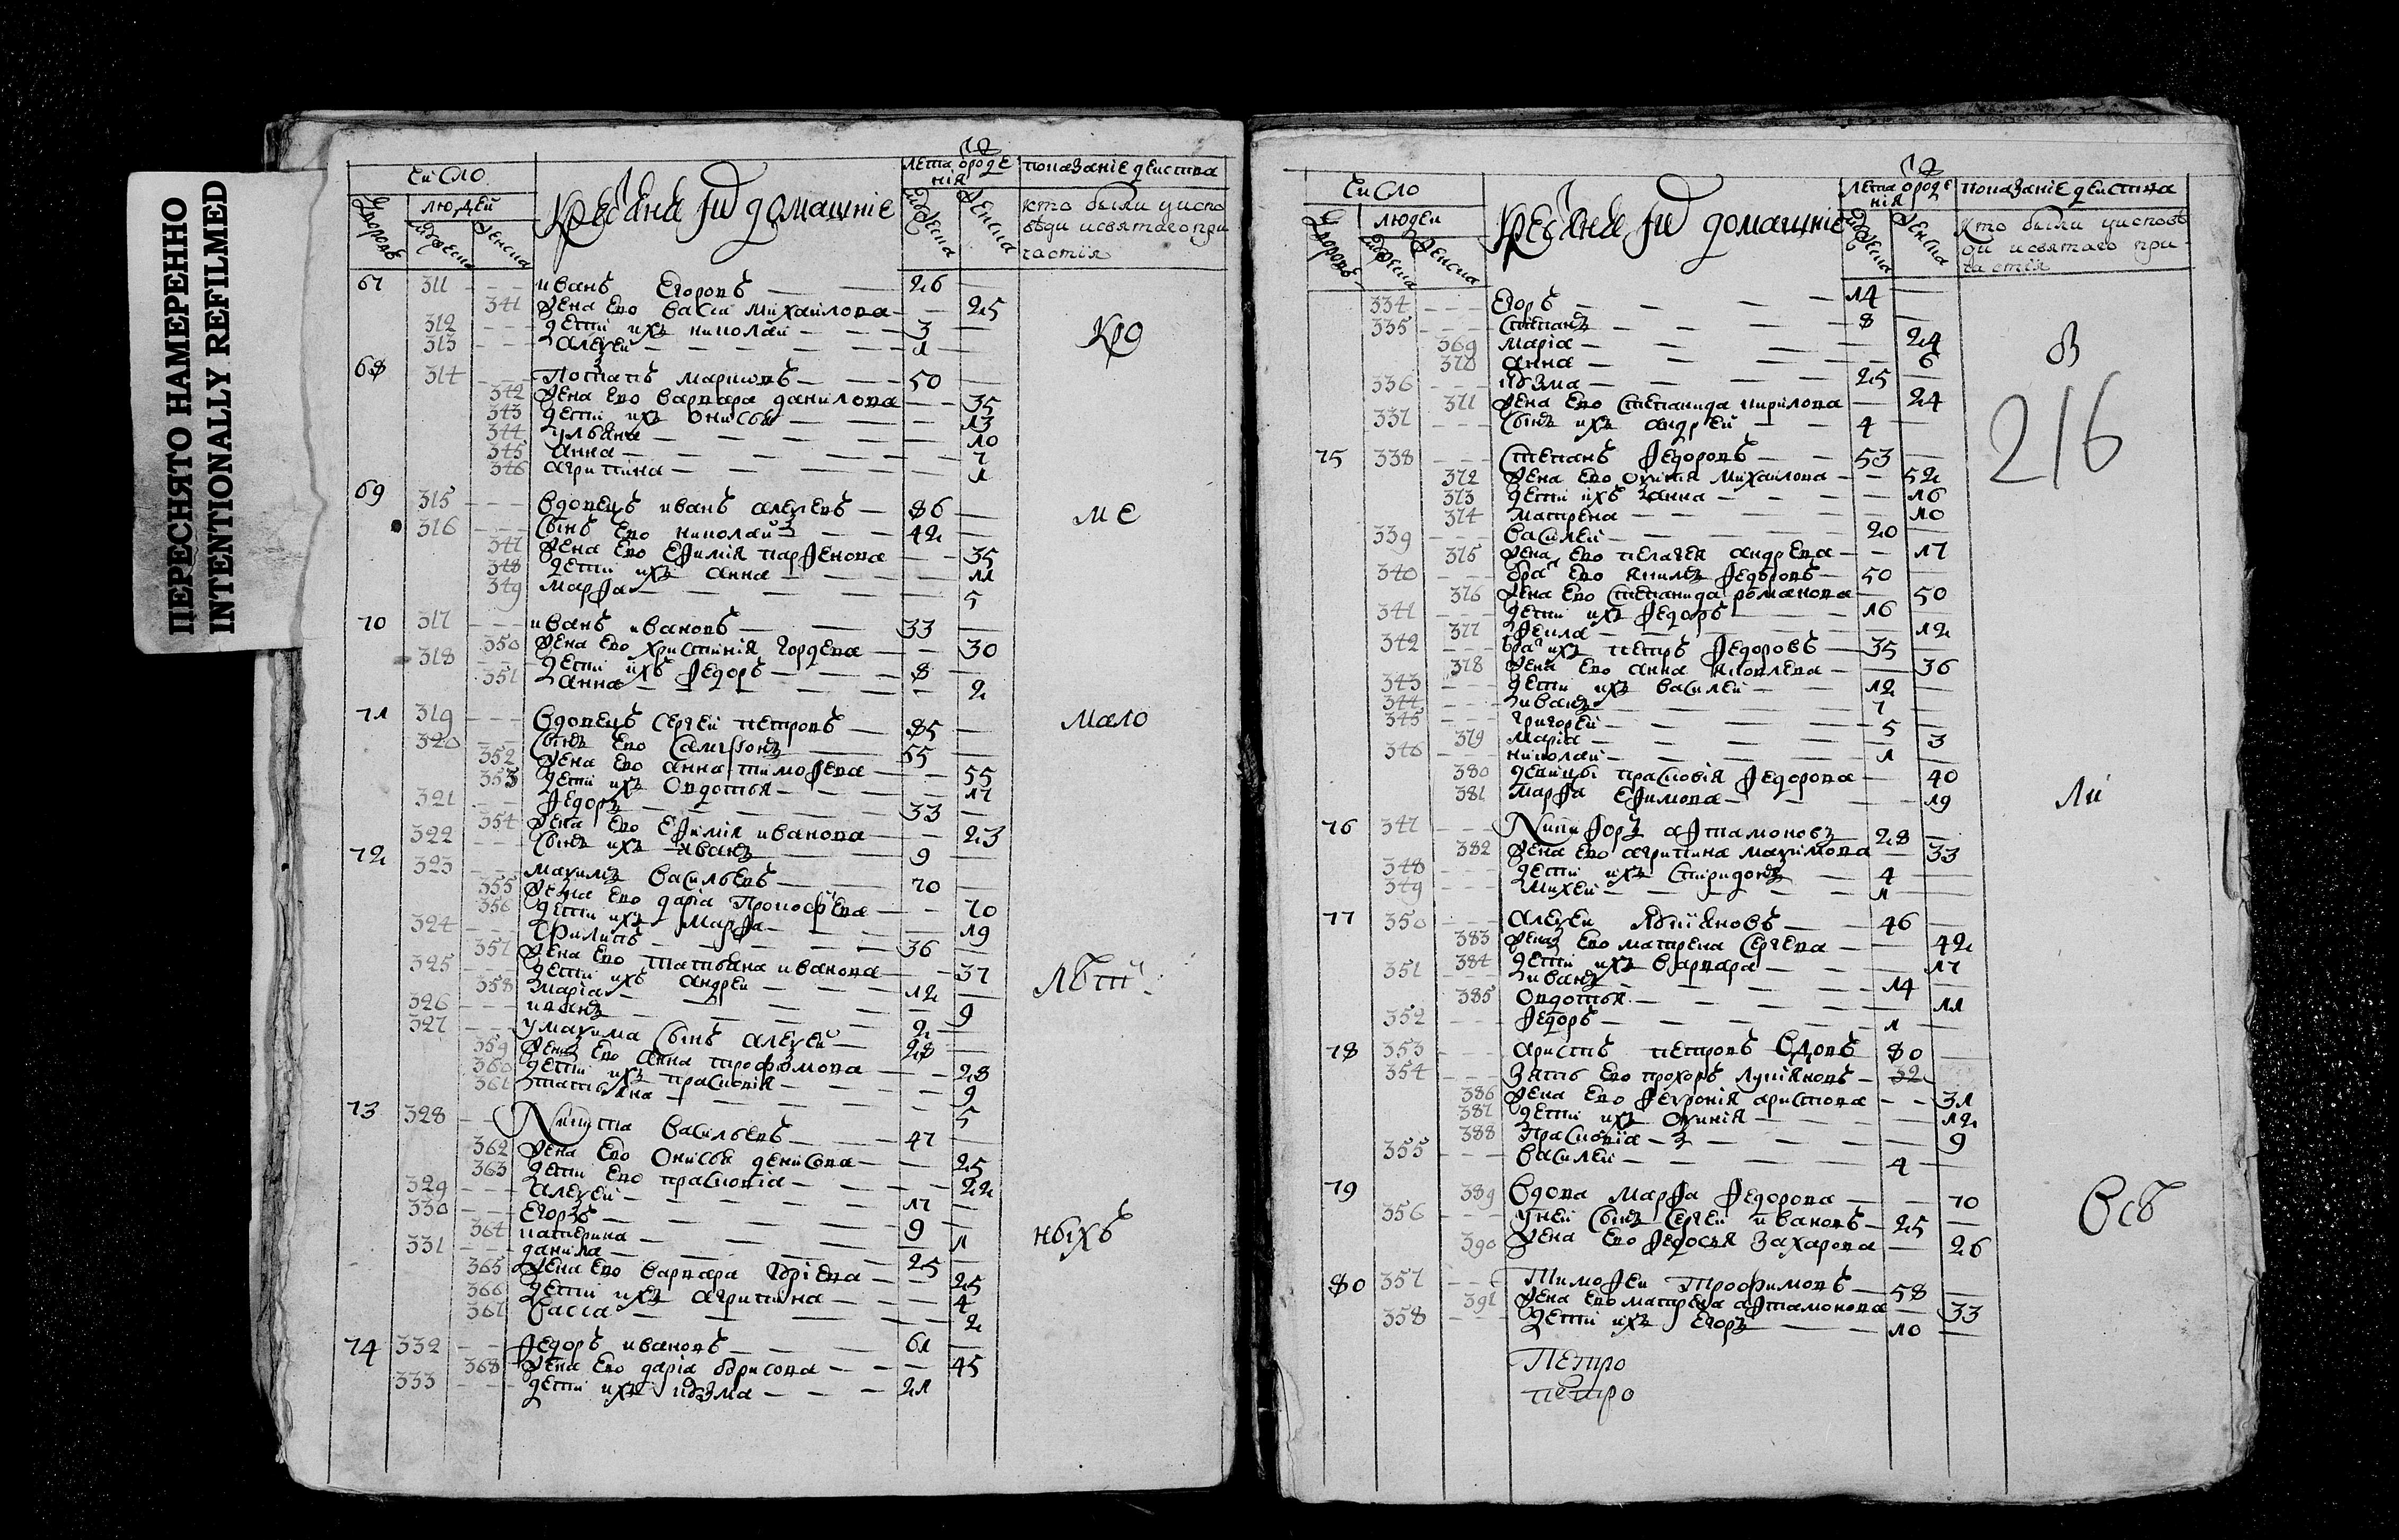 ПЕРЕСНЯТО НАМЕРЕННО
INTENTIONALLY REFILMED
число
лѣта ѿ рожде
нія
показаніе действа
дворовъ
людей
мужеска
женска
крестьяне и ихъ домашніе
мужеска
женска
кто были у испо
вѣди и святаго при
частія
67 311 иванъ Егоровъ 26
341 жена Ево васса михаилова 25
312 дети ихъ николаи 3
313 алеѯеи 1
68 314 Потапъ марковъ 50
342 жена Ево варвара данилова 35
343 дети ихъ Онисья 13
344 ульяна 10
345 анна 7
346 агрипина 1
69 315 вдовецъ иванъ алеѯеевъ 86
316 сынъ Ево николай 42
347 жена Ево Еѳимія парѳенова 35
348 дети ихъ анна 11
349 марѳа 5
70 317 иванъ ивановъ 33
350 жена Ево христинія гордеева 30
318 дети ихъ ѳедоръ 8
351 анна 2
71 319 вдовецъ сергеи петровъ 85
320 сынъ Ево сампсонъ 55
352 жена Ево анна тимоѳеева 55
353 дети ихъ Овдотья 17
321 ѳедоръ 33
354 жена Ево Еѳимія иванова 23
322 сынъ ихъ иванъ 9
72 323 маѯимъ васильевъ 70
355 жена Ево даріа Прокофьева 70
356 дети ихъ марѳа 19
324 Филипъ 36
357 жена Ево татьяна иванова 37
325 дети ихъ андреи 12
358 маріа 9
326 иванъ 2
327 у маѯима сынъ алеѯеи 28
359 жена Ево анна трофимова 28
360 дети ихъ прасковія 9
361 татьяна 5
73 328 Никита васильевъ 47
362 жена Ево Онисья денисова 25
363 дети Ево прасковіа 22
329 алеѯеи 17
330 Егоръ 9
364 катерина 1
331 данила 25
365 жена Ево варвара 25
366 дети ихъ агрипина 4
367 васса 2
74 332 ѳедоръ ивановъ 61
368 жена Ево даріа борисова 45
333 дети ихъ кузма 21
КРО
МЕ
МАЛО
ЛѢТ
НЫХЪ
число
лѣта ѿ рожде
нія
показаніе действа
дворовъ
людеи
мужеска
женска
крестьяне и ихъ домашніе
мужеска
женска
Кто были у исповѣ
ди и святаго при
частія
334 Егоръ 14
335 степанъ 8
369 маріа 24
370 анна 6
336 кузма 25
371 жена Ево степанида кирилова 24
337 сынъ ихъ андреи 4
75 338 степанъ ѳедоровъ 53
372 жена Ево Оѯинія михаилова 52
373 дети ихъ анна 16
374 матрена 10
339 василеи 20
375 жена Ево пелагея андреева 17
340 брат Ево якимъ ѳедоровъ 50
376 жена Ево степанида романова 50
341 дети ихъ ѳедоръ 16
377 ѳекла 12
342 брат ихъ петръ ѳедоровъ 35
378 жена Ево анна яковлева 36
343 дети ихъ василеи 12
344 иванъ 7
345 григореи 5
379 маріа 3
346 николаи 1
380 девицы прасковія ѳедорова 40
381 марѳа Еѳимова 19
76 347 Никиѳоръ аѳтамоновъ 28
382 жена Ево агрипина маѯимова 33
348 дети ихъ спиридонъ 4
349 михеи 1
77 350 алеѯеи 46
383 жена Ево матрена сергеева 42
384 дети ихъ варвара 17
351 иванъ 14
385 Овдотья 11
352 ѳедоръ 1
78 353 аристъ петровъ вдовъ 80
354 зять Ево прохоръ лукіяновъ 32
386 жена Ево ѳевронія аристова 31
387 дети ихъ Оѯинія 12
388 Прасковіа 9
355 василеи 4
79 389 вдова марѳа ѳедорова 70
356 у неи сынъ сергеи ивановъ 25
390 жена Ево ѳедосья захарова 26
80 357 Тимоѳеи Трофимовъ 58
391 жена Ево матрена аѳтамонова 33
358 дети ихъ Егоръ 10
Петро
петро
В
216
Ли
Всѣ